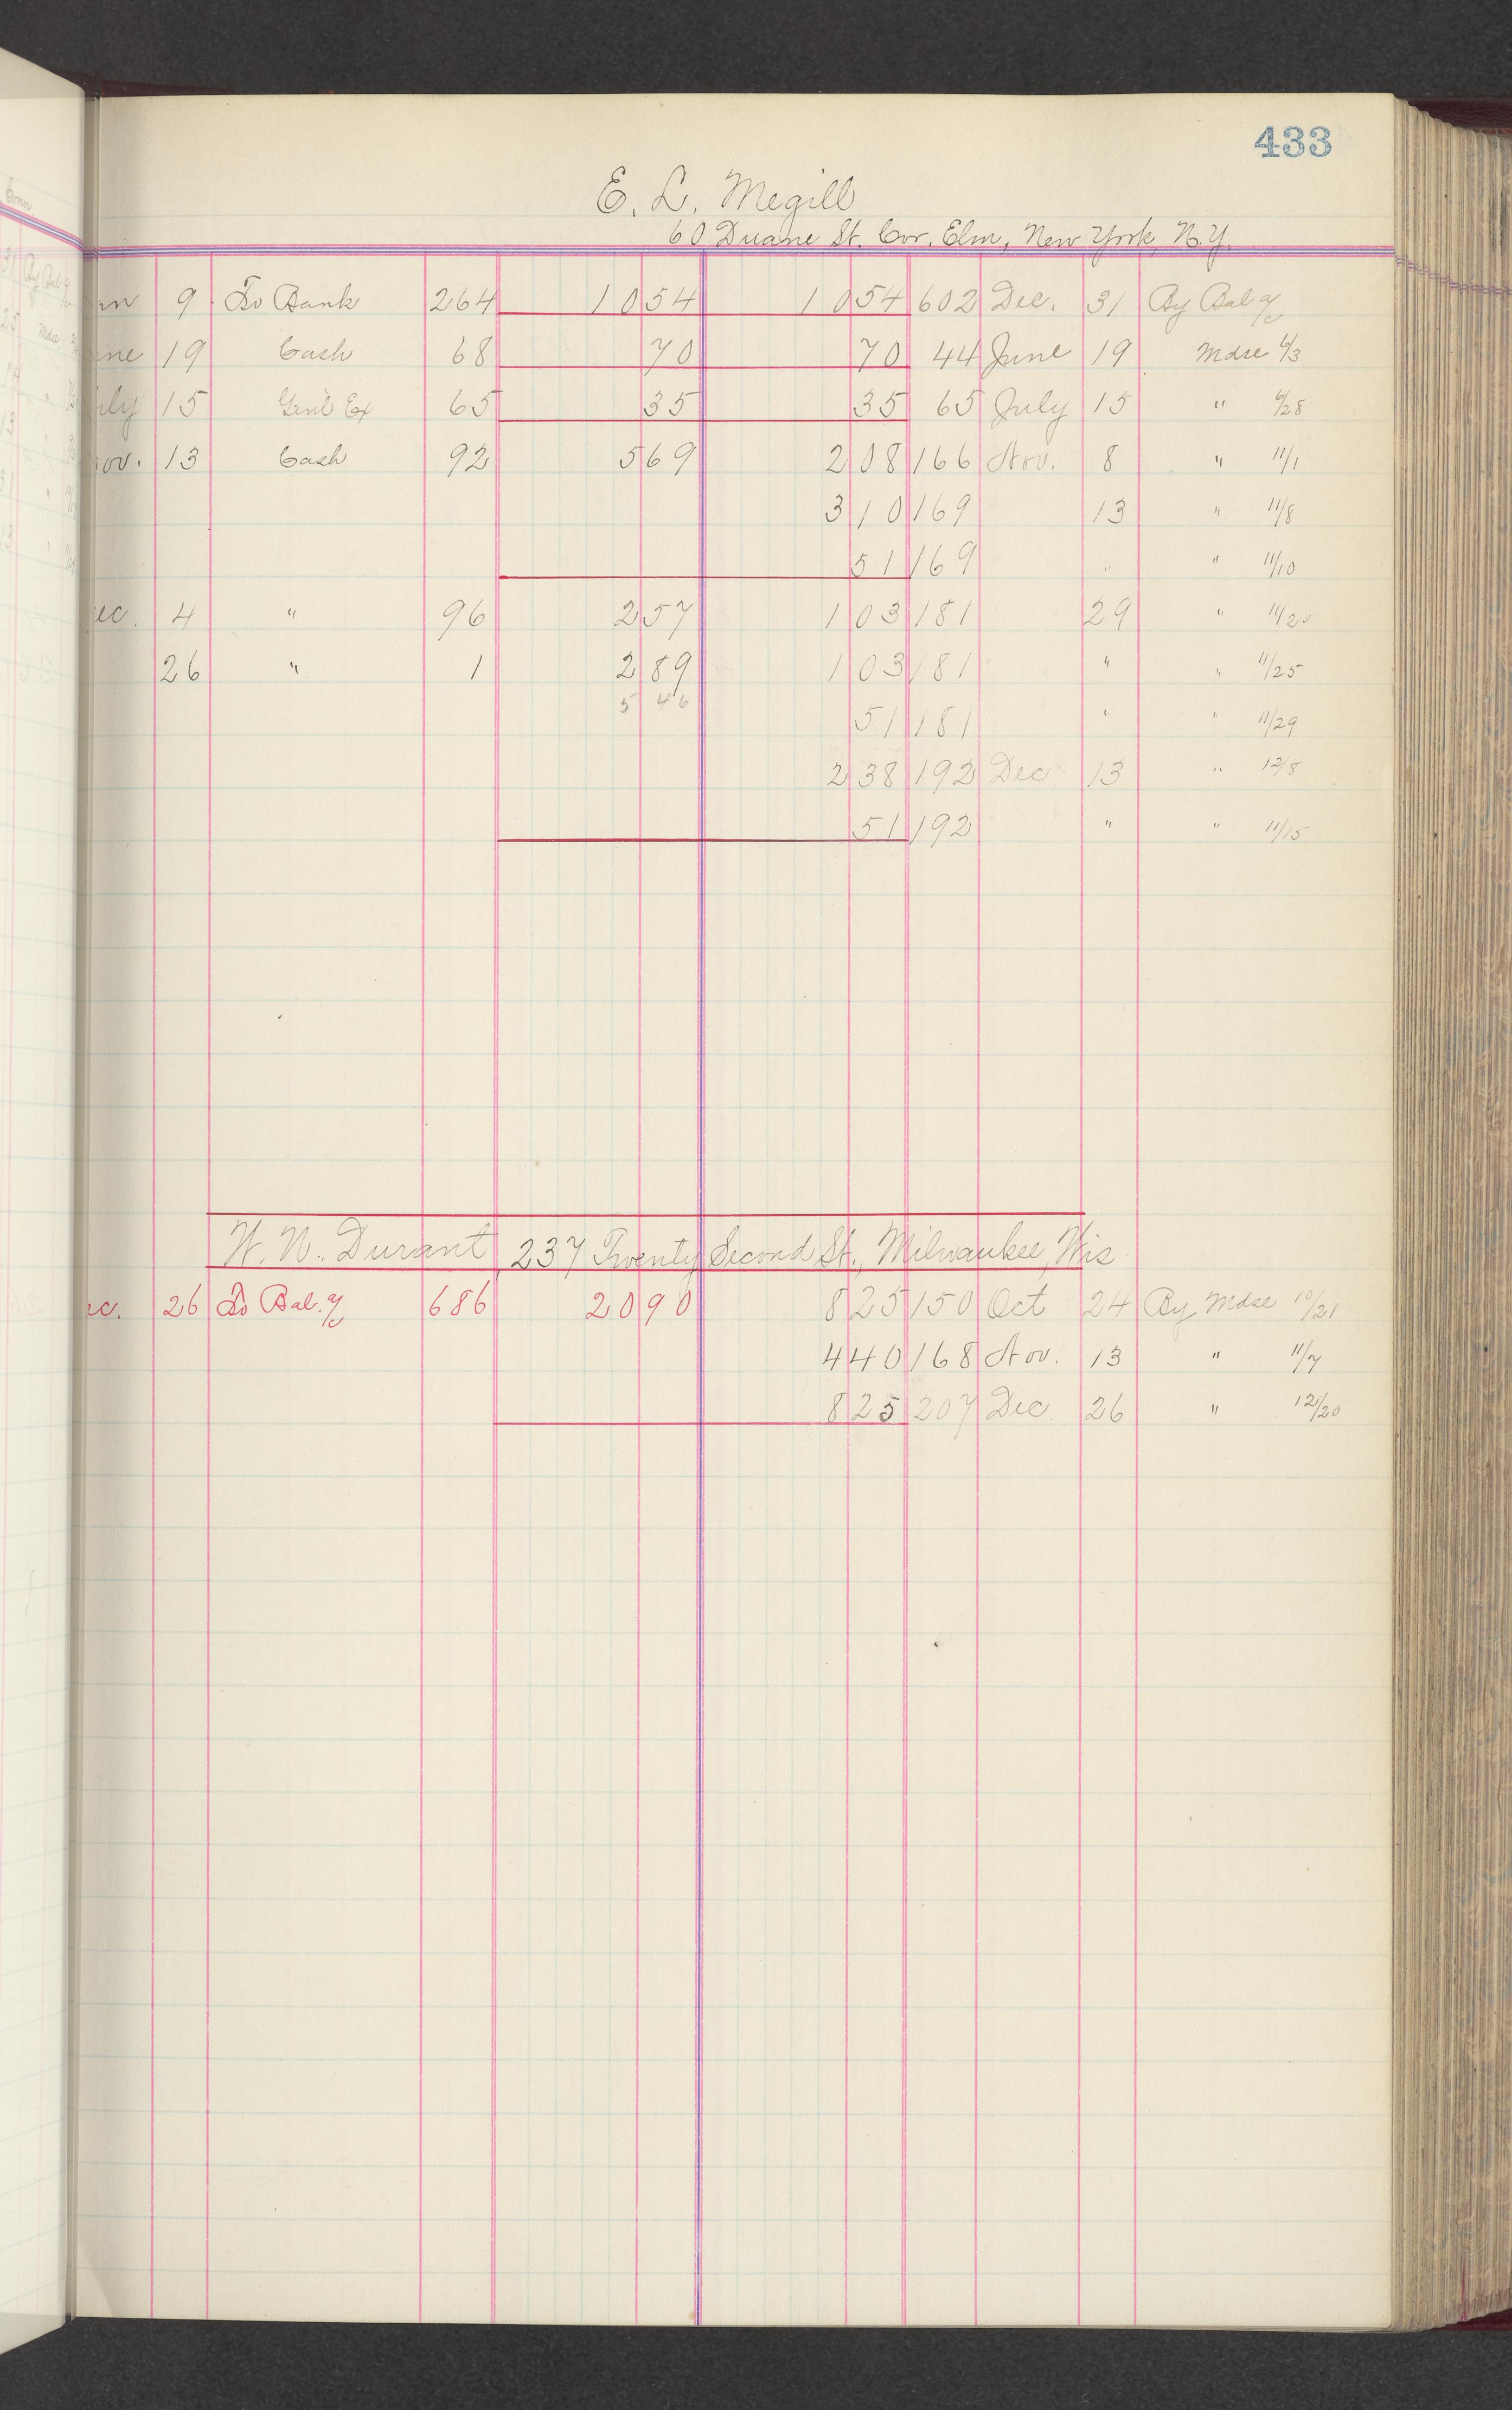 433
E. L. Megill
60 Duane St. Cor. Elm, New York, N.Y.
9 To Bank 264 10 54 10 54 602 Dec. 31 By Bal a/c
19 Cash 68 70 70 44 June 19 Mdse 6/3
15 Gen'l Ex 65 35 35 65 July 15 " 6/28
ov. 13 Cash 92 5 69 2 08 166 Nov. 8 " 11/1
3 10 169 13 " 11/8
51 169 " " 11/10
ec. 4 " 96 2 57 1 03 181 29 " 11/20
26 " 1 2 89 1 03 181 " " 11/25
5 46
51 181 " " 11/29
2 38 192 Dec 13 " 12/8
51 192 " " 11/15
W. N. Durant, 237 Twenty Second St., Milwaukee, Wis
ec. 26 To Bal. a/c 686 20 90 8 25 150 Oct 24 By Mdse 10/21
4 40 168 Nov. 13 " 11/7
8 25 207 Dec. 26 " 12/20